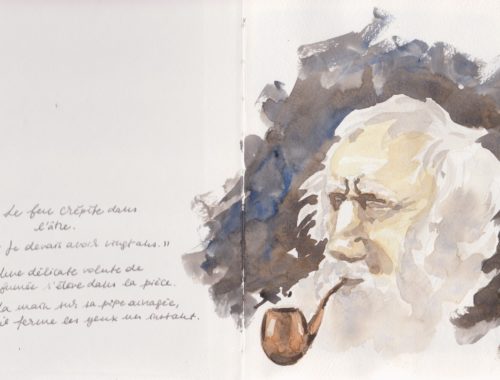 Le feu crépite dans
l'âtre.
Je devais avoir vingt ans. »
Une délicate volute de
fumée s'élève dans la pièce.
La main sur sa pipe
il ferme les yeux un instant.